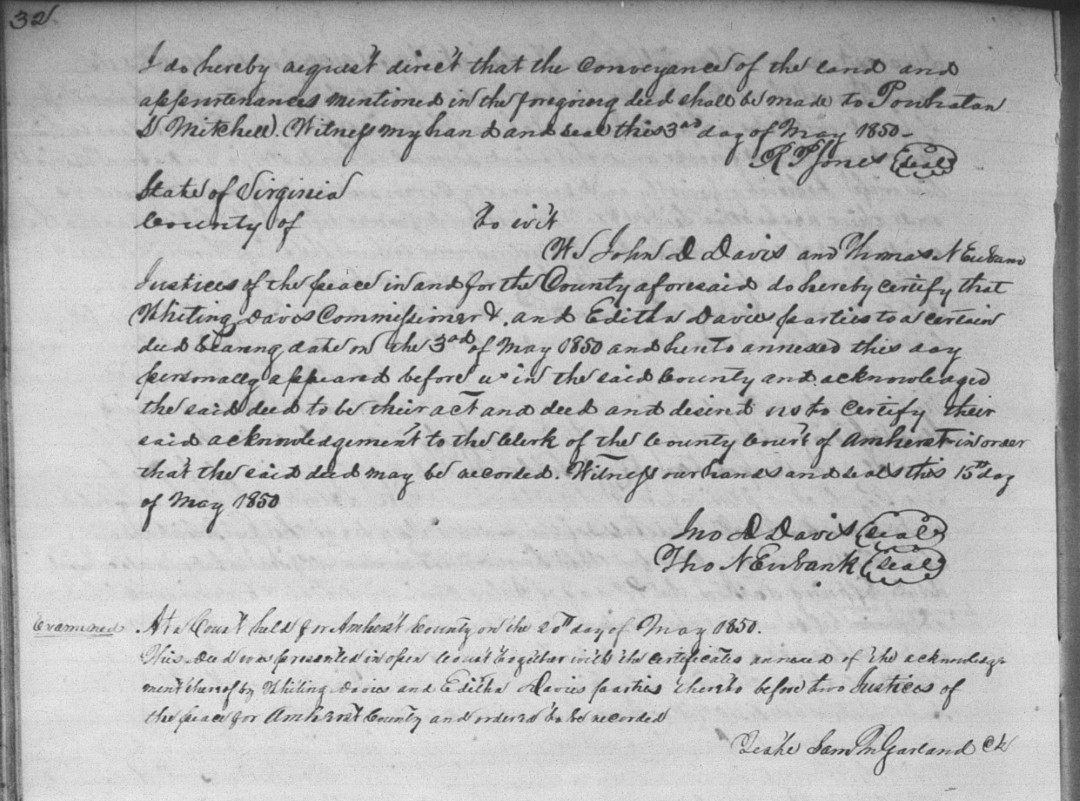 32
I do hereby request & direct that the conveyance of the land and
appurtenances mentioned in the foregoing deed shall be made to Powhatan
D Mitchell. Witness my hand and seal this 3rd day of May 1850 -
R P Jones (seal)
State of Virginia
County of to wit
We John D Davis and Thomas N Eubank
Justices of the peace in and for the County aforesaid do hereby certify that
Whiting Davies Commissioner &. and Editha Davies parties to a certain
deed bearing date on the 3rd of May 1850 and hereto annexed this day
personally appeared before us in the said County and acknowledged
the said deed to be their act and deed and desired us to certify their
said acknowledgement to the Clerk of the County Court of Amherst in order
that the said deed may be recorded. Witness our hands and seals this 15th day
of May 1850
Jno D Davis (seal)
Tho N Eubank (seal)
Examined
At a Court held for Amherst County on the 20th day of May 1850.
This deed was presented in open Court together with the certificates annexed of the acknowledg-
ment thereof by Whiting Davies and Editha Davies parties thereto before two Justices of
the peace for Amherst County and ordered to be recorded
Teste Sam M Garland Ck